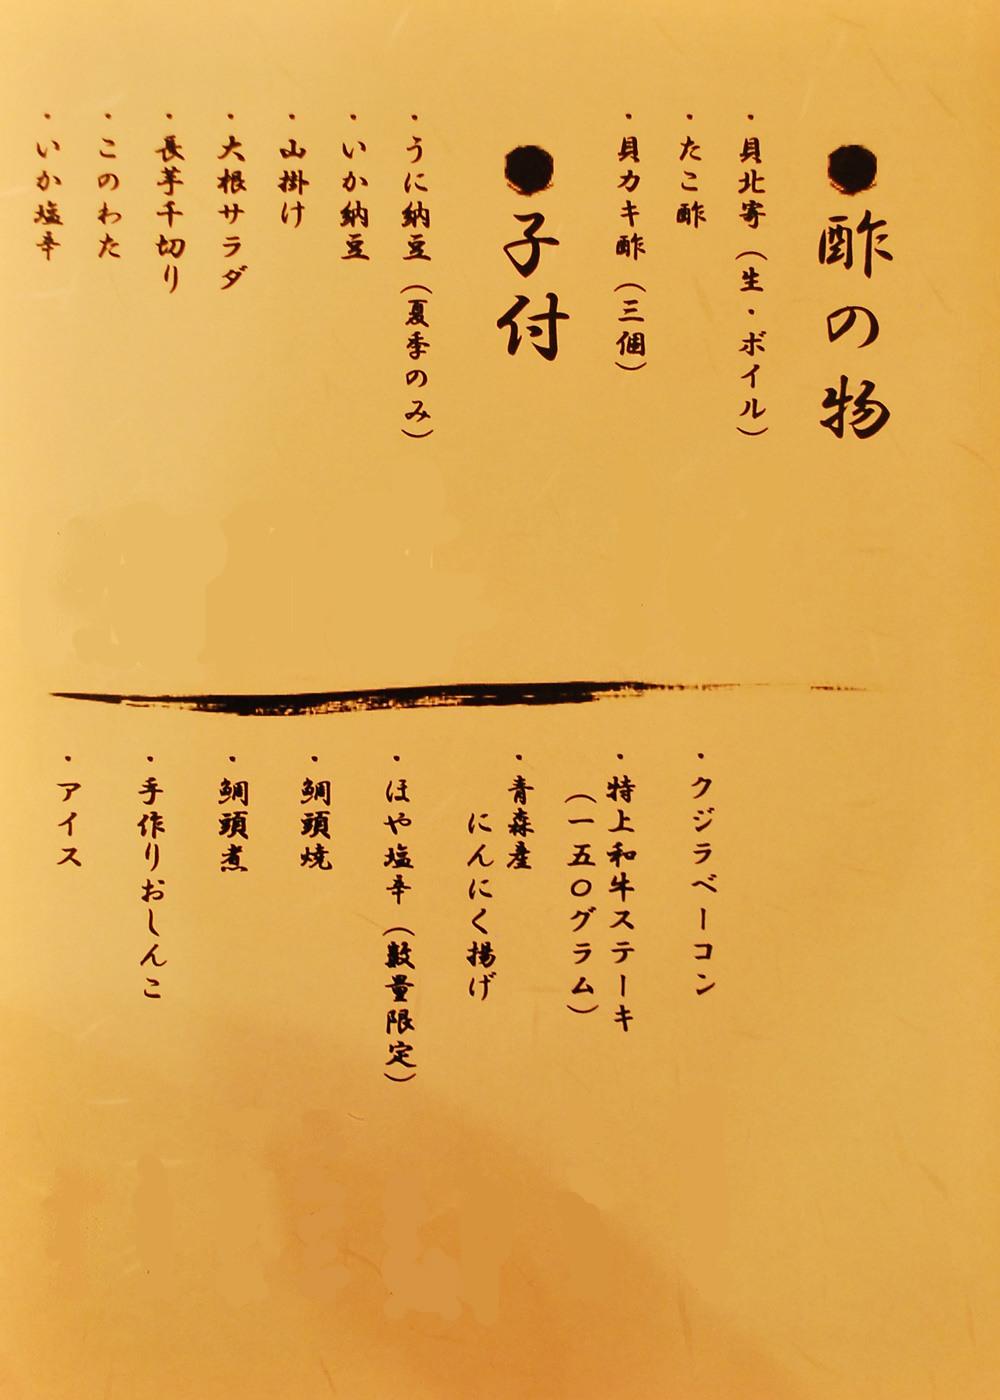 ●酢の物
・貝北寄(生・ボイル)
・たこ酢
・貝カキ酢(三個)
●子付
・うに納豆(夏季のみ)
・いか納豆
・山掛け
・大根サラダ
・長芋千切り
・このわた
・いか塩辛
・クジラベーコン
・特上和牛ステーキ
(一五〇グラム)
・青森産
にんにく揚げ
・ほや塩辛(数量限定)
・鯛頭焼
・鯛頭煮
・手作りおしんこ
・アイス